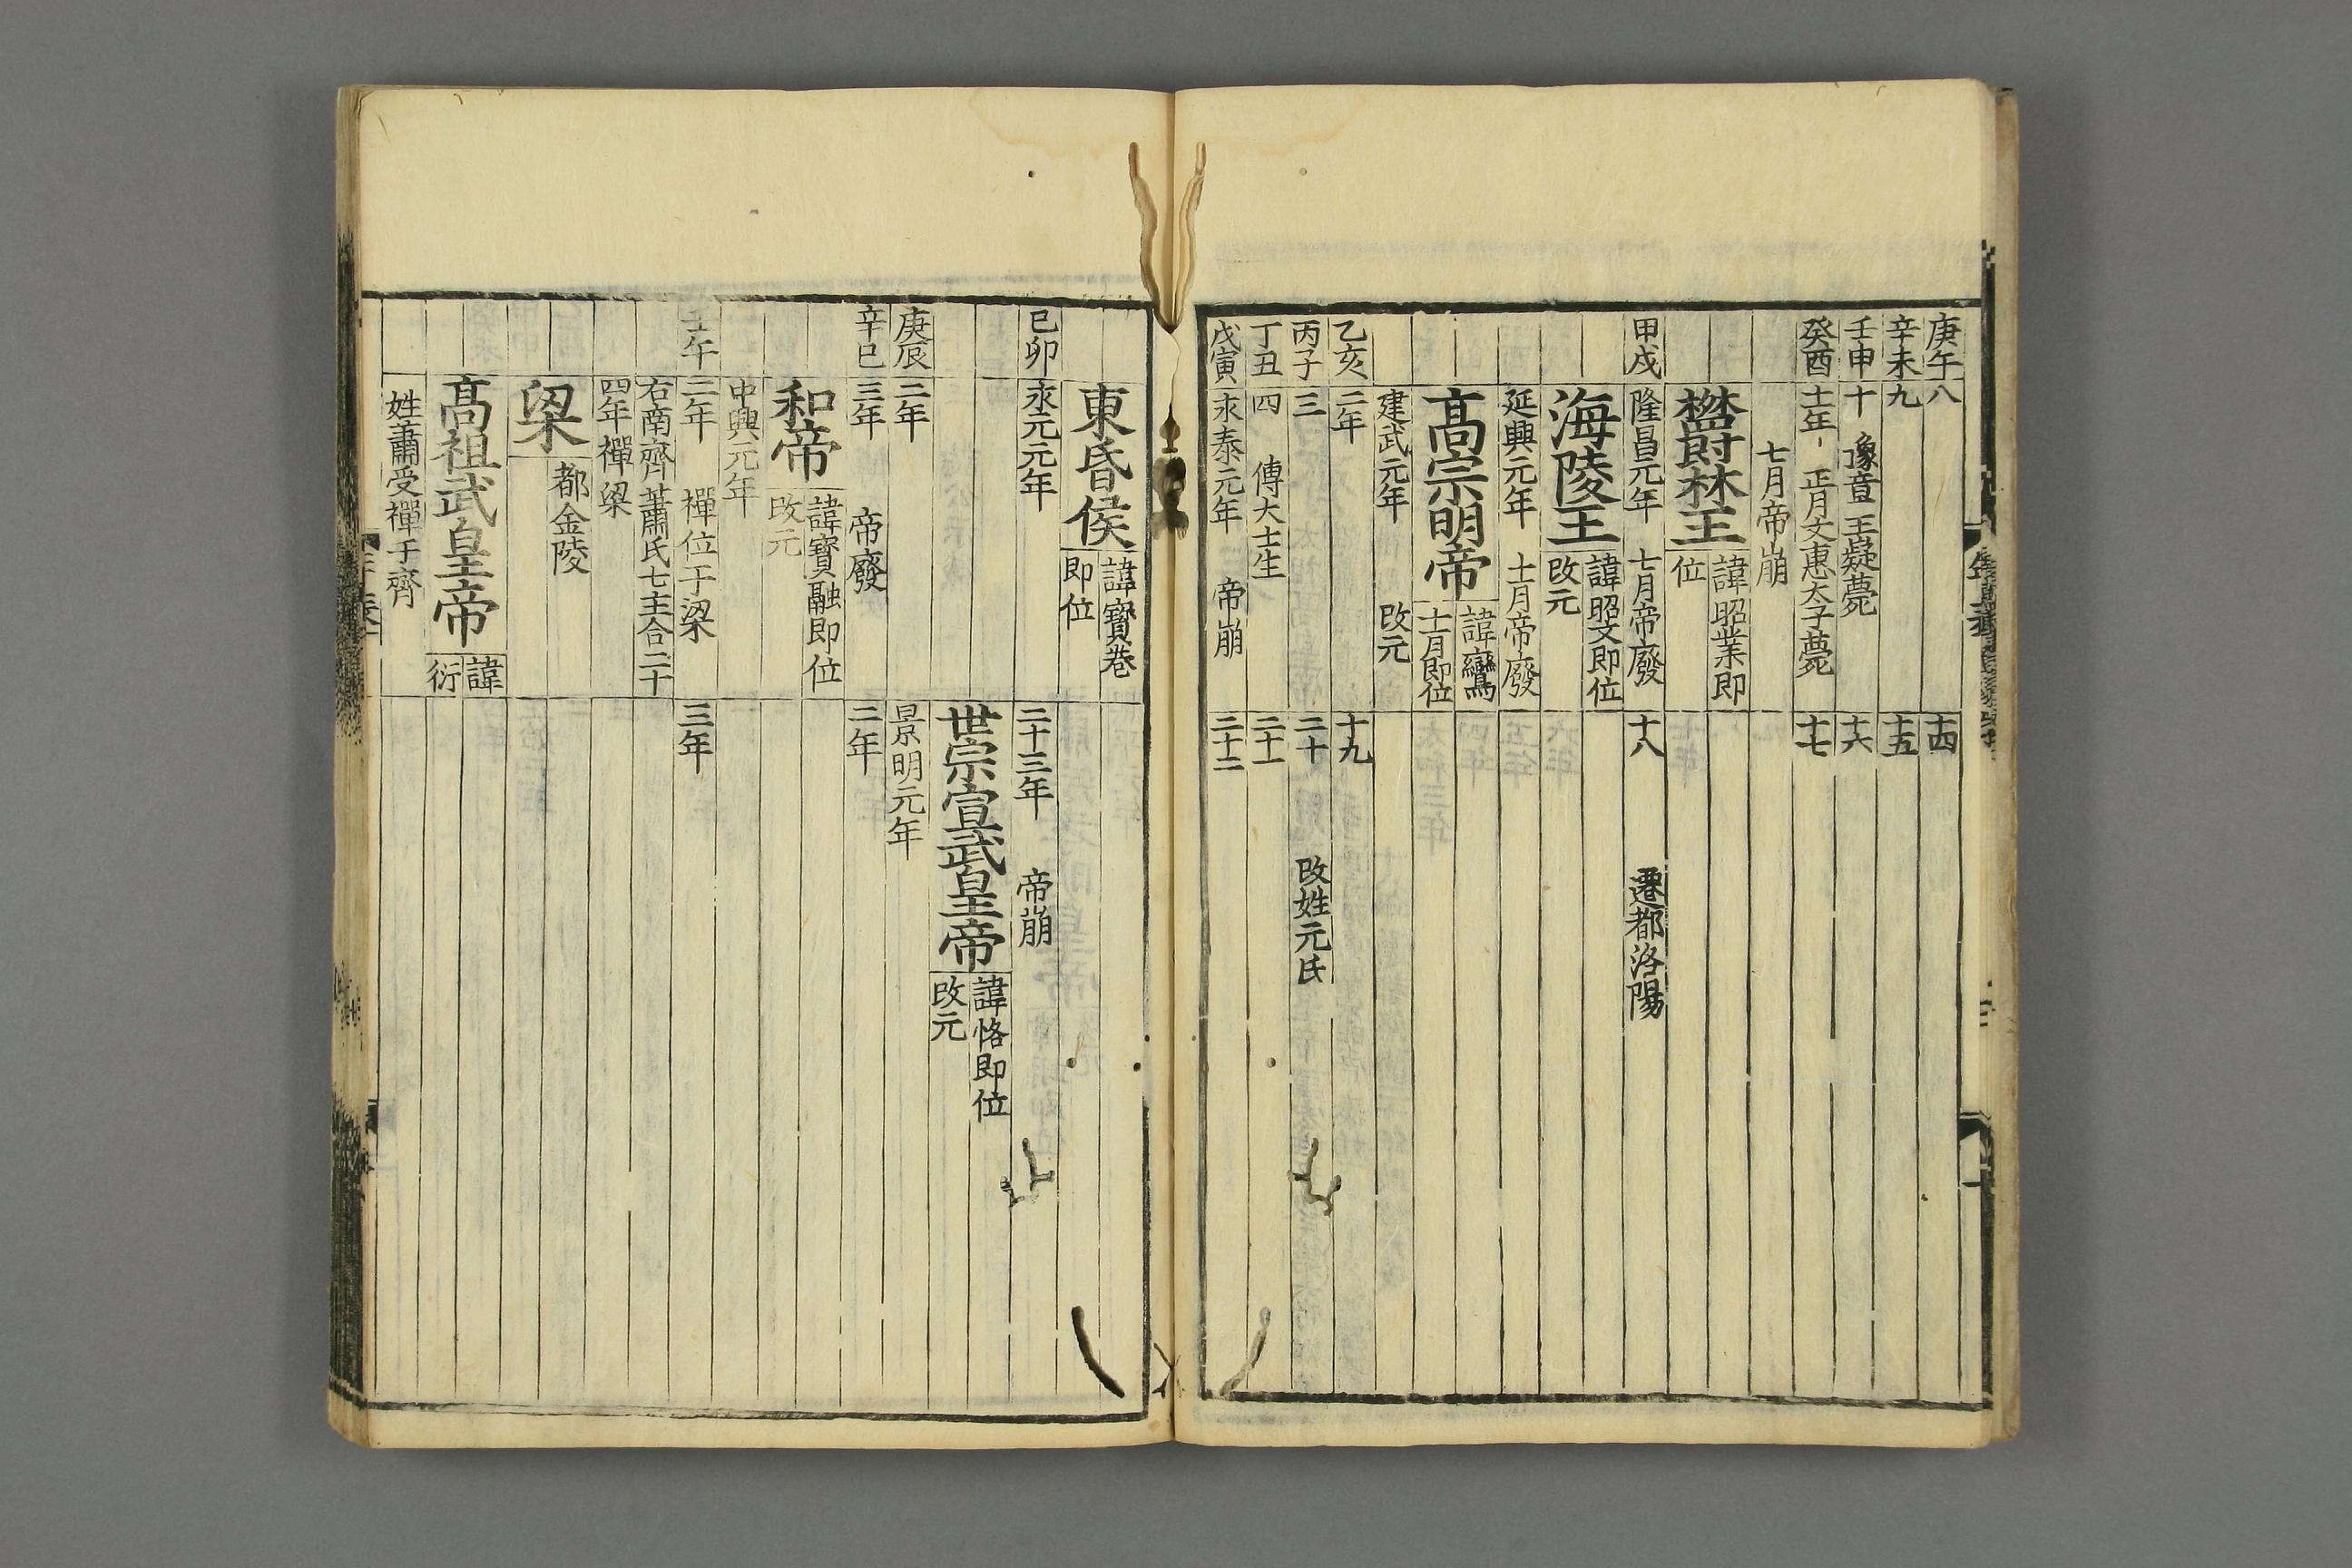 庚午 八 十四
辛未 九 十五
壬申 十 豫章王嶷薨 十六
癸酉 十一年 正月文惠太子薨 十七
七月帝崩
欝林王 諱昭業即位
甲戌 隆昌元年 七月帝廢 十八 遷都洛陽
海陵王 諱昭文即位改元
延興元年 十一月帝廢
髙宗明帝 諱鸞十一月即位
建武元年 改元
乙亥 二年 十九
丙子 三 二十 改姓元氏
丁丑 四 傳大士生 二十一
戊寅 永泰元年 帝崩 二十二
東昏侯 諱寳卷即位
己卯 永元元年 二十三年 帝崩
世宗宣武皇帝 諱恪即位改元
庚辰 二年 景明元年
辛巳 三年 帝廢 二年
和帝 諱寳融即位改元
中興元年
壬午 二年 禪位于梁 三年
右南齊蕭氏七主合二十
四年禪梁
梁 都金陵
髙祖武皇帝 諱衍
姓蕭受禪于齊